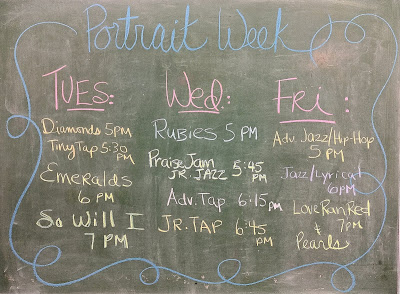 Portrait Week
TUES:
Diamonds 5PM
Tiny Tap 5:30
PM
Emeralds
6 PM
So Will I
7 PM
Wed:
Rubies 5 PM
Praise Jam
JR. JAZZ 5:45
PM
Adv. Tap 6:15 PM
JR. TAP 6:45
PM
Fri:
Adv. Jazz/Hip-Hop
5 PM
Jazz/Lyrical
6pm
Love Ran Red
7pm
&
Pearls